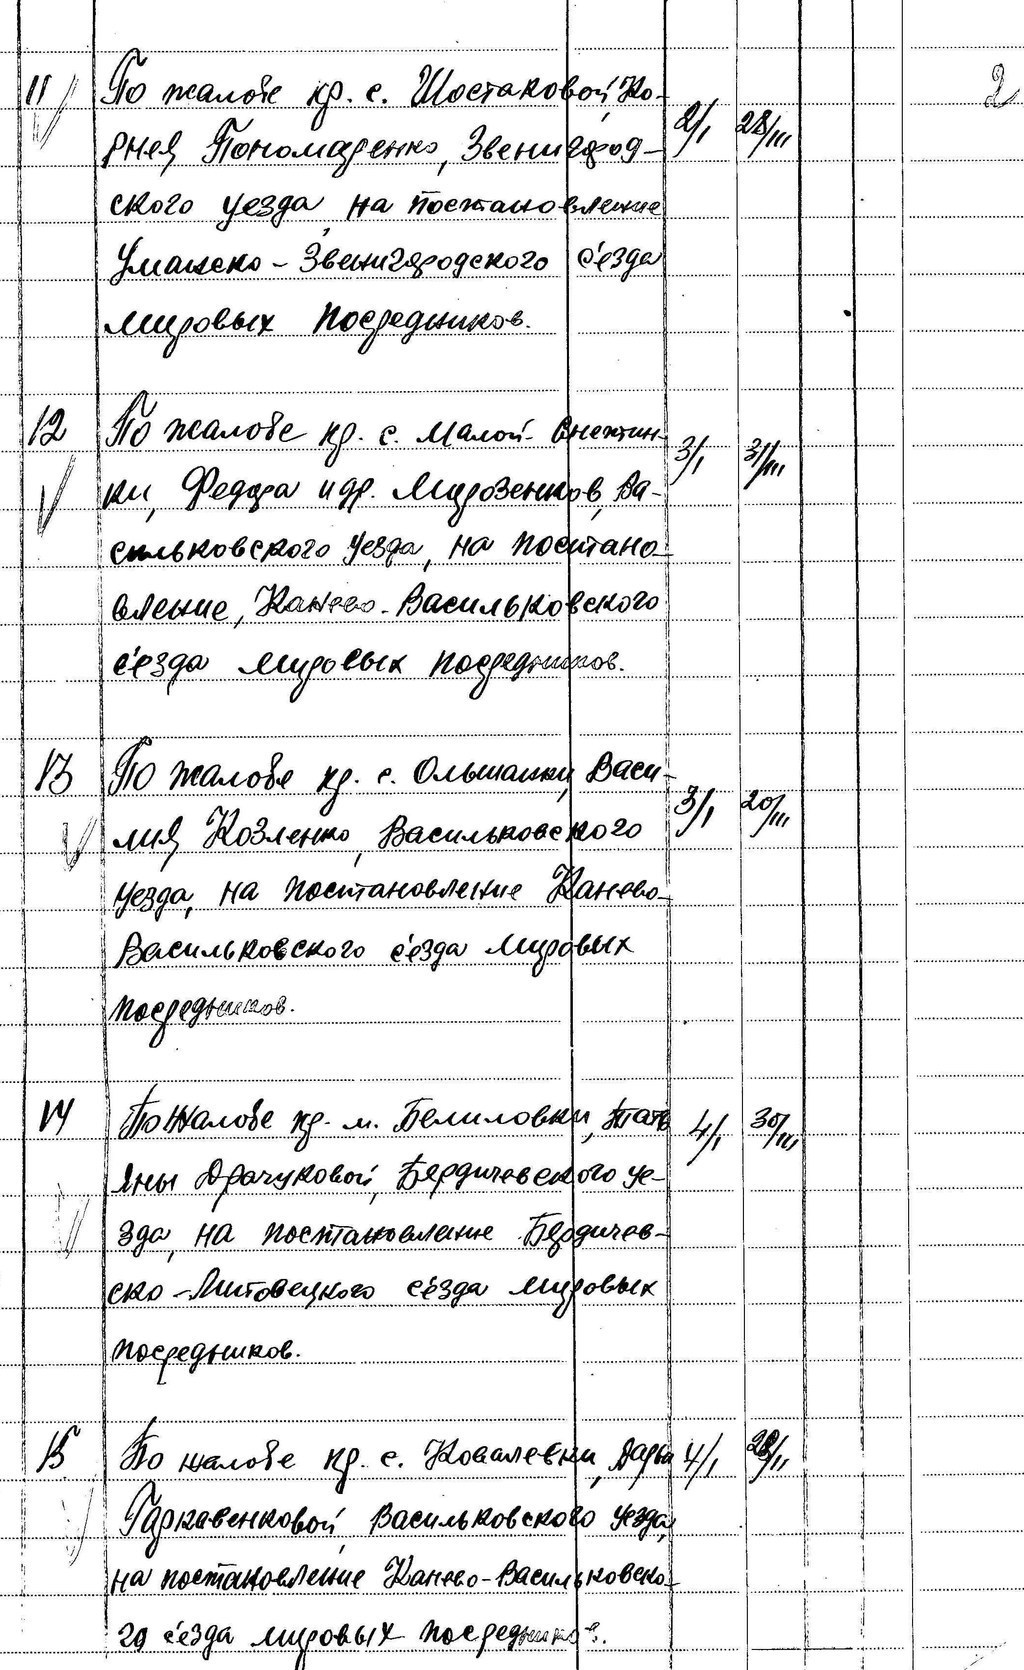 2
11 По жалобе кр. с. Шостаковой, Ко- 2/I 28/III
рнея Пономаренко, Звенигород-
ского уезда, на постановление
Уманско-Звенигородского с'езда
мировых посредников.
12 По жалобе кр. с. Малой-Снетин- 3/I 31/III
ки, Федора и др. Мирозенков, Ва-
сильковского уезда, на постано-
вление, Канево-Васильковского
с'езда мировых посредников.
13 По жалобе кр. с. Ольшанки, Васи- 3/I 20/III
лия Козленко, Васильковского
уезда, на постановление Канево-
Васильковского с'езда мировых
посредников.
14 По жалобе кр. м. Белиловки, Тать 4/I 30/III
яны Драчуковой, Бердичевского уе-
зда, на постановление Бердичев-
ско-Липовецкого с'езда мировых
посредников.
15 По жалобе кр. с. Ковалевки, Дарьи 4/I
Гаркавенковой, Васильковского уезда,
на постановление Канево-Васильковско-
го с'езда мировых посредников.